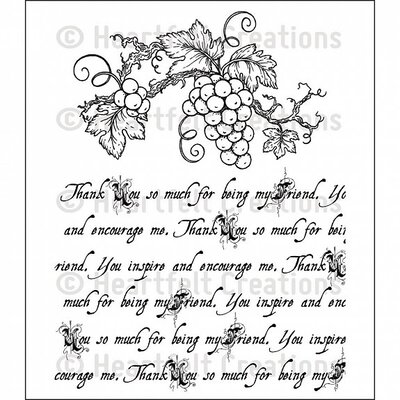 © Heartfelt Creations
© Heartfelt Creations
Thank You so much for being my Friend. Yo
© Heartfelt Creations
and encourage me. Thank You so much for bein
riend. You inspire and encourage me. Thank
© Heartfelt Creations
much for being my Friend. You inspire and enc
You so much for being my Friend. You inspire
© Heartfelt Creations
courage me. Thank You so much for being my F